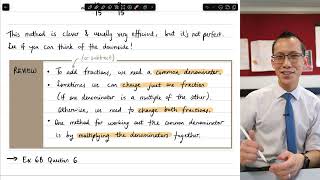 15 15
This method is clever & usually very efficient, but it's not perfect.
See if you can think of the downside!
REVIEW
(or subtract)
• To add fractions, we need a common denominator.
• Sometimes we can change just one fraction
(if one denominator is a multiple of the other).
Otherwise, we need to change both fractions.
• One method for working out the common denominator
is by multiplying the denominators together.
→ Ex 6B Question 6.